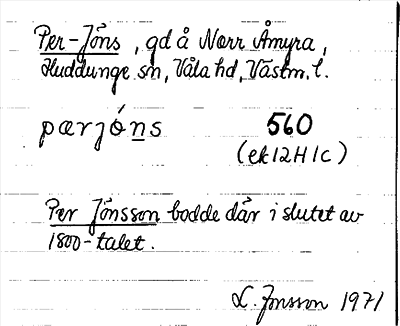 Per-Jöns, gd å Norr Åmyra,
Huddunge sn, Våla hd, Västm. l.
pærjóns 560
(ek12H1c)
Per Jönsson bodde där i slutet av
1800-talet.
L. Jonsson 1971